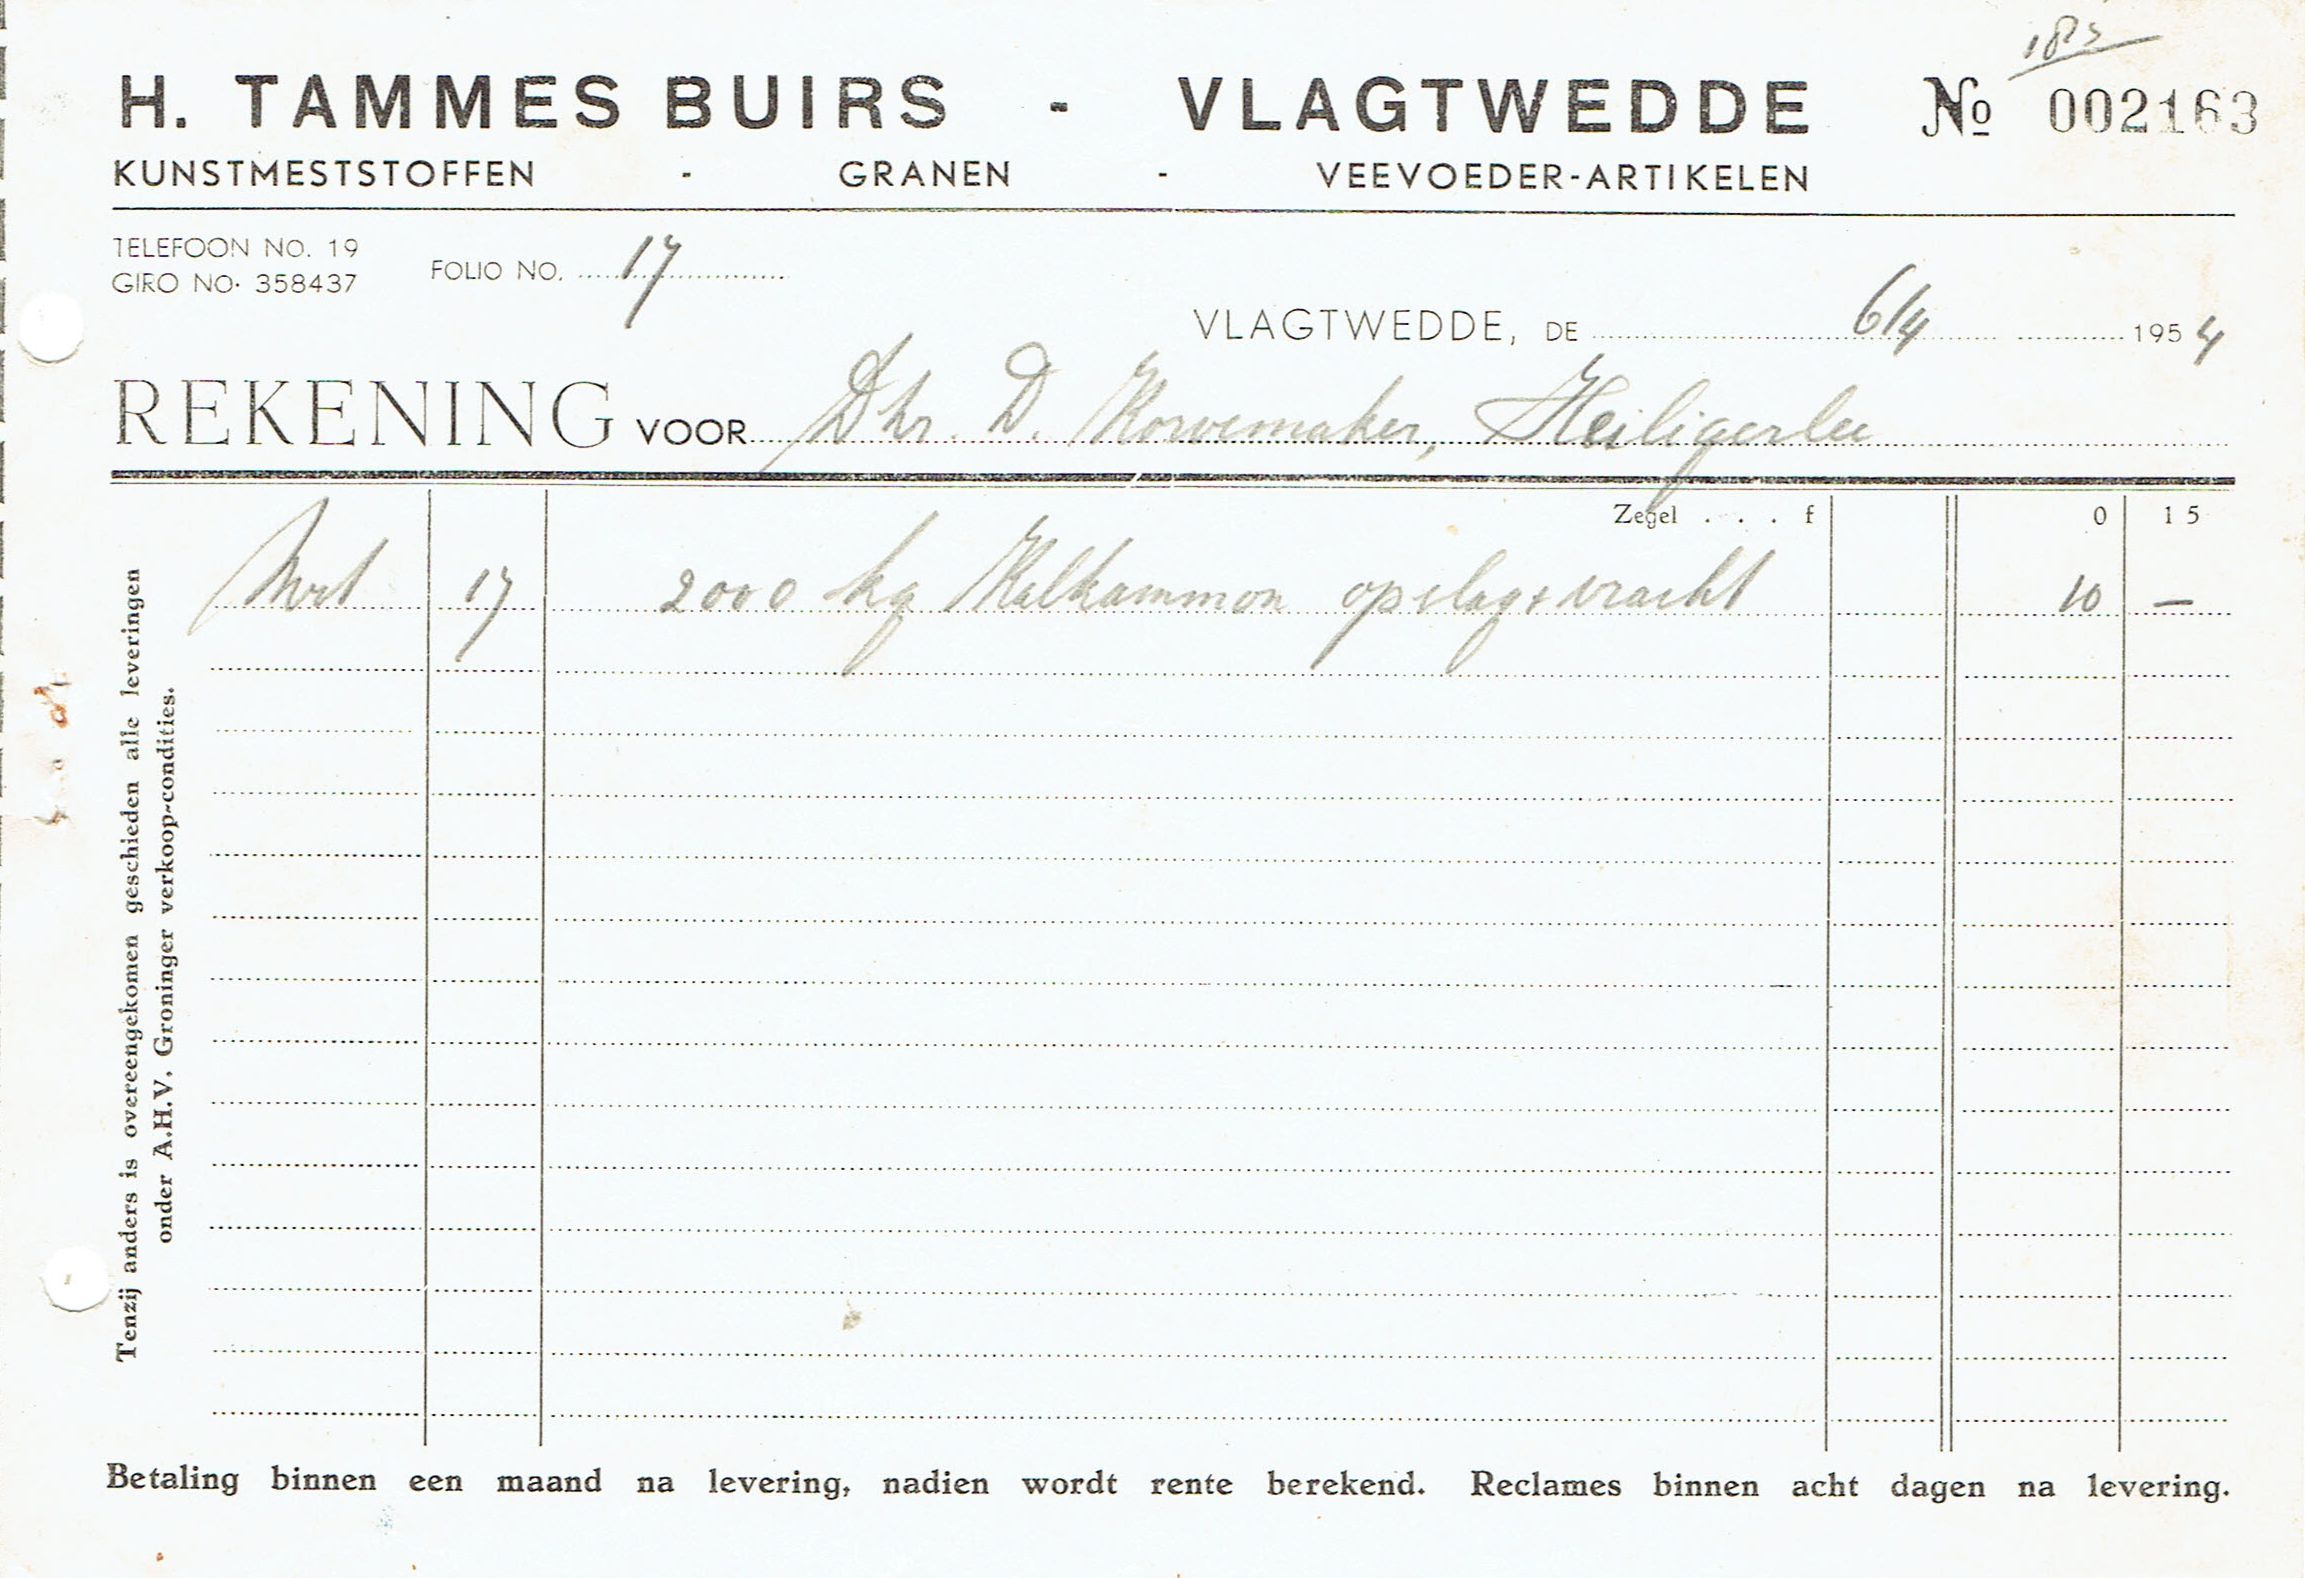 H. TAMMES BUIRS - VLAGTWEDDE № 002163
KUNSTMESTSTOFFEN - GRANEN - VEEVOEDER-ARTIKELEN
TELEFOON NO. 19
GIRO NO. 358437
FOLIO NO. 17
VLAGTWEDDE, DE 6/4 1954
REKENING VOOR Dhr. D. Korvemaker, Heiligerlee
Zegel . . . f 0 15
Mrt 17 2000 kg Kalkammon opslag + vracht 10 —
Tenzij anders is overeengekomen geschieden alle leveringen
onder A.H.V. Groninger verkoop-condities.
Betaling binnen een maand na levering, nadien wordt rente berekend. Reclames binnen acht dagen na levering.